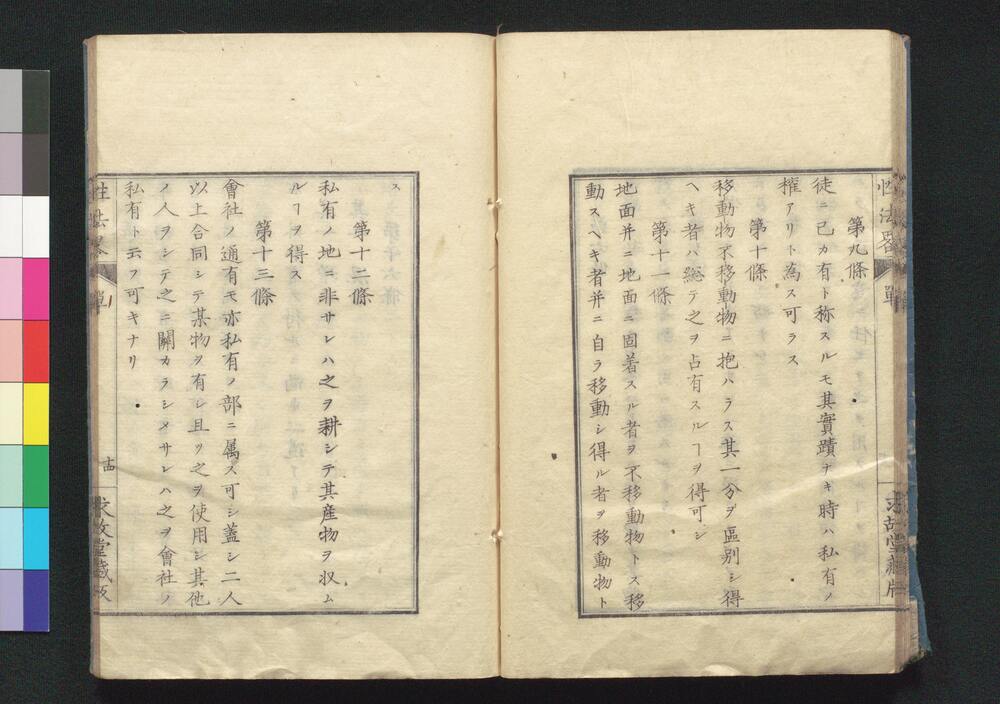 性法畧
單
求故堂藏版
第九條
徒ニ己カ有ト称スルモ其實蹟ナキ時ハ私有ノ
權アリト為ス可ラス
第十條
移動物不移動物ニ抱ハラス其一分ヲ區別シ得
ヘキ者ハ総テ之ヲ占有スルヿヲ得可シ
第十一條
地面并ニ地面ニ固着スル者ヲ不移動物トス移
動スヘキ者并ニ自ラ移動シ得ル者ヲ移動物ト
ス
第十二條
私有ノ地ニ非サレハ之ヲ耕シテ其産物ヲ収ム
ルヿヲ得ス
第十三條
會社ノ通有モ亦私有ノ部ニ属ス可シ蓋シ二人
以上合同シテ某物ヲ有シ且ツ之ヲ使用シ其他
ノ人ヲシテ之ニ關カラシメサレハ之ヲ會社ノ
私有ト云フ可キナリ
性法畧
單
十四
求故堂藏版